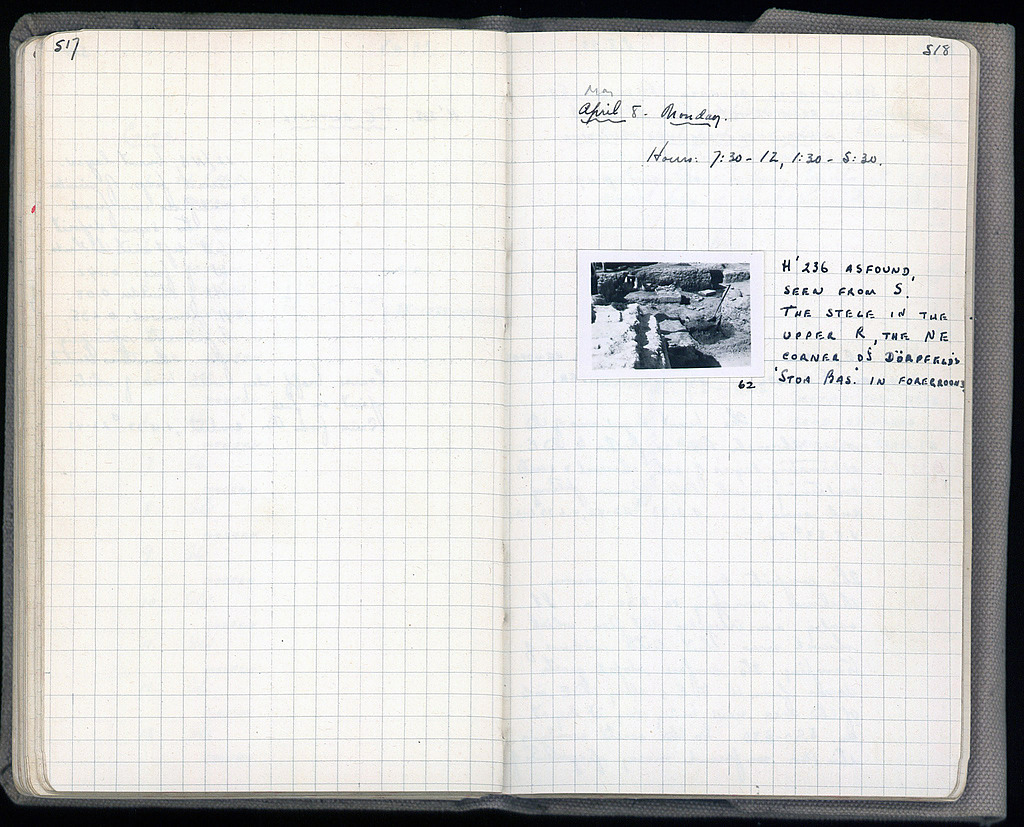 517
518
May
April 8. Monday.
Hours: 7:30 - 12, 1:30 - 5:30.
H' 236 AS FOUND,
SEEN FROM S.
THE STELE IN THE
UPPER R, THE NE
CORNER OF DÖRPFELD'S
'STOA BAS.' IN FOREGROUND.
62